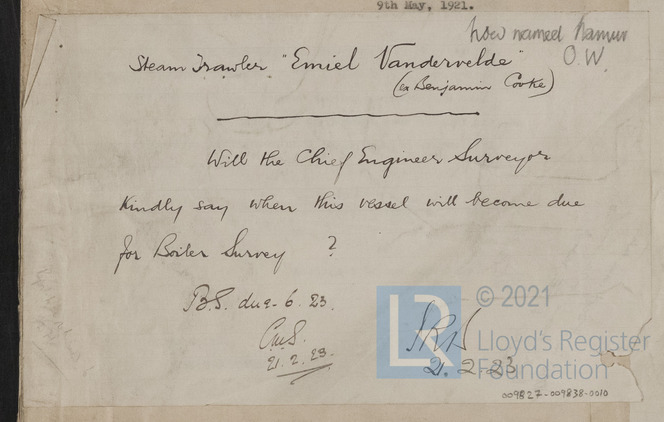 9th May, 1921.
now named Namur
O.W.
Steam Trawler "Emiel Vandervelde"
(ex Benjamin Cooke)
Will the Chief Engineer Surveyor
kindly say when this vessel will become due
for Boiler Survey ?
B.S. due 6.23.
21.2.23.
2.2.23
LR
© 2021
Lloyd's Register
Foundation
009527-009838-0010